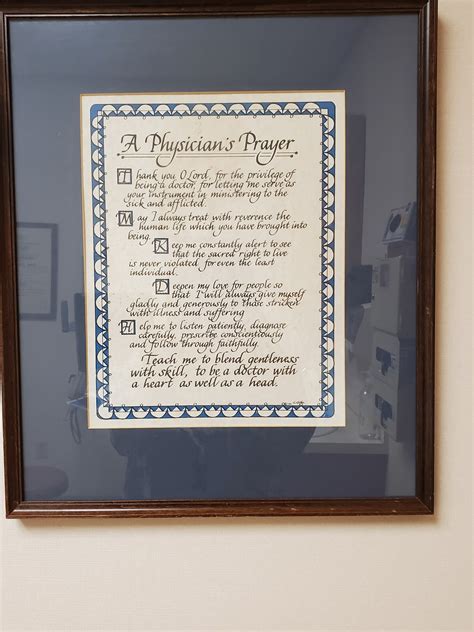 A Physician's Prayer
Thank you O Lord, for the privilege of
being a doctor, for letting me serve as
your instrument in ministering to the
sick and afflicted.
May I always treat with reverence the
human life which you have brought into
being.
Keep me constantly alert to see
that the sacred right to live
is never violated for even the least
individual.
Deepen my love for people so
that I will always give myself
gladly and generously to those stricken
with illness and suffering
Help me to listen patiently, diagnose
carefully, prescribe conscientiously
and follow through faithfully.
Teach me to blend gentleness
with skill, to be a doctor with
a heart as well as a head.